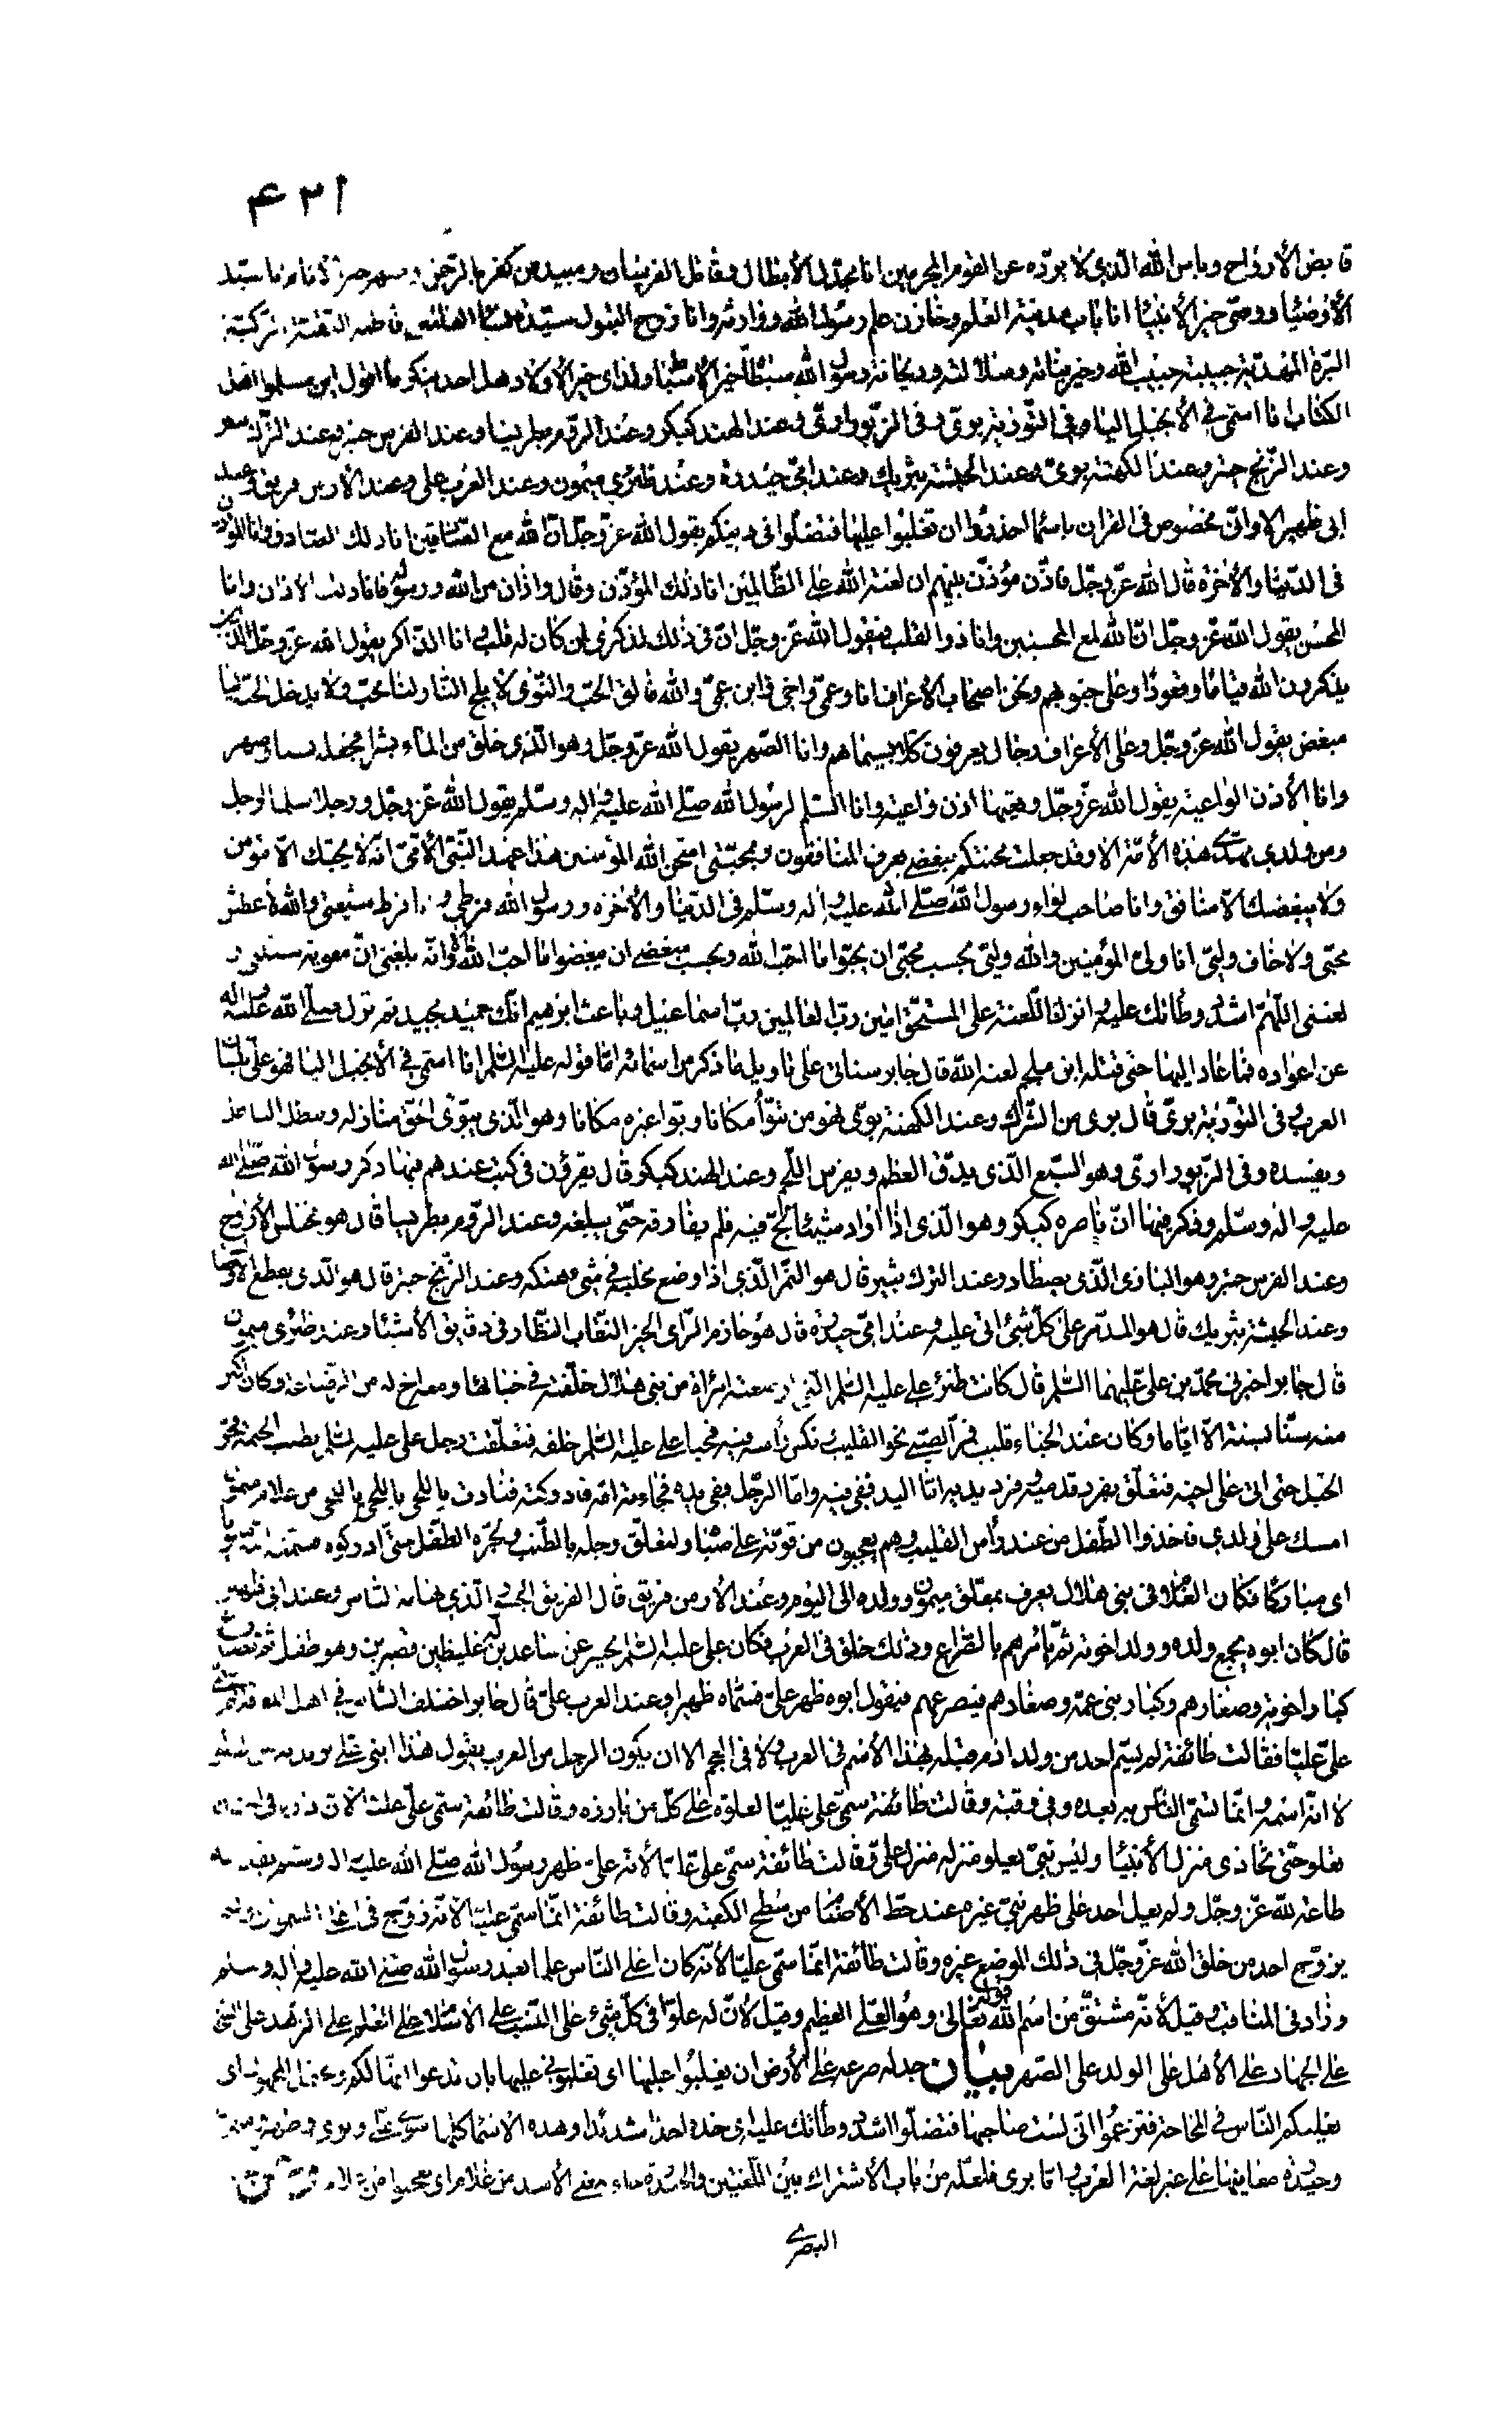 ٤٢١
قابض الأرواح وبأس الله الذي لا يرده عن القوم المجرمين انا مجدل الأبطال وقاتل الفرسان ومبيد من كفر بالرحمن وصهر خير الأنام انا سيد
الأوصياء ووصي خير الأنبياء انا باب مدينة العلم وخازن علم رسول الله ووارثه وانا زوج البتول سيدة نساء العالمين فاطمة التقية الزكية
البرة المهدية حبيبة حبيب الله وخير بناته وسلالته وريحانة رسول الله سبطاه خير الأسباط وولداي خير الأولاد هل احد ينكر ما اقول اين مسلموا اهل
الكتاب انا اسمي في الأنجيل اليا وفي التورية بري وفي الزبور اري وعند الهند كبكر وعند الروم بطريسا وعند الفرس جبتر وعند الترك بثير
وعند الزنج حيتر وعند الكهنة بوئ وعند الحبشة بثريك وعند امي حيدرة وعند ظئري ميمون وعند العرب علي وعند الأرمن فريق وعند
ابي ظهير الا واني مخصوص في القران باسماء احذروا ان تغلبوا عليها فتضلوا في دينكم يقول الله عز وجل ان الله مع الصادقين انا ذلك الصادق وانا المؤذن
في الدنيا والأخرة قال الله عز وجل فاذن مؤذن بينهم ان لعنة الله على الظالمين انا ذلك المؤذن وقال واذان من الله ورسوله فانا ذلك الاذان وانا
المحسن يقول الله عز وجل ان الله لمع المحسنين وانا ذو القلب فيقول الله عز وجل ان في ذلك لذكرى لمن كان له قلب وانا الذاكر يقول الله عز وجل الذين
يذكرون الله قياما وقعودا وعلى جنوبهم ونحن اصحاب الأعراف انا وعمي واخي وابن عمي والله فالق الحب والنوى لا يلج النار لنا محب ولا يدخل الجنة لنا
مبغض يقول الله عز وجل وعلى الأعراف رجال يعرفون كلا بسيماهم وانا الصهر يقول الله عز وجل وهو الذي خلق من الماء بشرا فجعله نسبا وصهرا
وانا الأذن الواعية يقول الله عز وجل وتعيها اذن واعية وانا السلم لرسول الله صلى الله عليه واله وسلم يقول الله عز وجل ورجلا سلما لرجل
ومن ولدي مهدي هذه الأمة الا وقد جعلت محنتكم ببغضي يعرف المنافقون وبمحبتي امتحن الله المؤمنين هذا عهد النبي الأمي انه لا يحبك الا مؤمن
ولا يبغضك الا منافق وانا صاحب لواء رسول الله صلى الله عليه واله وسلم في الدنيا والأخرة ورسول الله فرطي وانا فرط شيعتي والله لا عطش
محبي ولا خاف وليي انا ولي المؤمنين والله وليي بحسب محبي ان يحبوا ما احب الله وبحسب مبغضي ان يبغضوا ما احب الله الا وانه بلغني ان معوية سبني و
لعنني اللهم اشدد وطأتك عليه وانزل اللعنة على المستحق امين رب العالمين رب اسماعيل وباعث ابرهيم انك حميد مجيد ثم نزل صلى الله عليه واله
عن اعواده فما عاد اليها حتى قتله ابن ملجم لعنه الله قال جابر سناتي على تاويل ما ذكر من اسمائه اما قوله عليه السلم انا اسمي في الأنجيل اليا فهو علي بلسان
العرب وفي التورية بري قال بري من الشرك وعند الكهنة بوئ فهو من تبوأ مكانا وبوأ غيره مكانا وهو الذي يبوئ الحق منازله ويبطل الباطل
ويفسده وفي الزبور اري وهو السبع الذي يدق العظم ويفرس اللحم وعند الهند كبكر قال يقرؤن في كتب عندهم فيها ذكر رسول الله صلى الله
عليه واله وسلم وذكر فيها ان ناصره كبكر وهو الذي اذا اراد شيئا لج فيه فلم يفارقه حتى يبلغه وعند الروم بطريسا قال هو مختلس الأرواح
وعند الفرس حبتر وهو البازي الذي يصطاد وعند الترك بثير قال هو النمر الذي اذا وضع مخلبه في شيء هتكه وعند الزنج حيتر قال هو الذي يقطع الأوصال
وعند الحبشة بثريك قال هو المدمر على كل شيء اتى عليه وعند امي حيدرة قال هو حازم الرأي الحبر النقاب النظار في دقايق الأشياء وعند ظئري ميمون
قال جابر اخبرني محمد بن علي عليهما السلم قال كانت ظئر علي عليه السلم التي ارضعته امرأة من بني هلال خلفته في خبائها ومعه اخ له من الرضاعة وكان اكبر
منه سنا بسنة الا اياما وكان عند الخباء قليب فمر الصبي نحو القليب ونكس رأسه فيه فحبا علي عليه السلم خلفه فتعلقت رجل علي عليه السلم بطنب الخيمة فجر
الحبل حتى اتى على اخيه فتعلق بفرد قدميه وفرد يديه اما اليد ففي فيه واما الرجل ففي يده فجاءته امه فادركته فنادت يا للحي يا للحي يا للحي من غلام ميمون
امسك علي ولدي فاخذوا الطفل من عند رأس القليب وهم يعجبون من قوته على صباه ولتعلق رجله بالطنب ولجره الطفل حتى ادركوه فسمته امه ميمونا
اي مباركا فكان الغلام في بني هلال يعرف بمعلق ميمون وولده الى اليوم وعند الأرمن فريق قال الفريق الجسور الذي يهابه الناس وعند ابي ظهير
قال كان ابوه يجمع ولده وولد اخوته ثم يأمرهم بالصراع وذلك خلق في العرب فكان علي عليه السلم يحسر عن ساعدين له غليظين قصيرين وهو طفل ثم يصارع
كبار اخوته وصغارهم وكبار بني عمه وصغارهم فيصرعهم فيقول ابوه ظهر علي فسماه ظهيرا وعند العرب علي قال جابر اختلف الناس في اهل المعرفة لم سمي
علي عليا فقالت طائفة لم يسم احد من ولد ادم قبله بهذا الأسم في العرب ولا في العجم الا ان يكون الرجل من العرب يقول هذا ابني علي يريد به من العلو
لا انه اسمه وانما تسمى الناس به بعده وفي وقته وقالت طائفة سمي علي عليا لعلوه على كل من بارزه وقالت طائفة سمي علي عليا لان داره في الجنان
تعلو حتى تحاذي منزل الأنبياء وليس نبي يعلو منزله منزل علي وقالت طائفة سمي علي عليا لأنه علا ظهر رسول الله صلى الله عليه واله وسلم بقدميه
طاعة لله عز وجل ولم يعل احد على ظهر نبي غيره عند حط الأصنام من سطح الكعبة وقالت طائفة انما سمي عليا لأنه زوج في اعلى السموات ولم
يزوج احد من خلق الله عز وجل في ذلك الموضع غيره وقالت طائفة انما سمي عليا لأنه كان اعلى الناس علما بعد رسول الله صلى الله عليه واله وسلم
وزاد في المناقب وقيل لأنه مشتق من اسم الله قوله تعالى وهو العلي العظيم وقيل لأن له علوا في كل شيء على النسب على الأسلام على العلم على الزهد على السخاء
على الجهاد على الأهل على الولد على الصهر بيان جدله صرعه على الأرض ان تغلبوا عليها اي تغلبوني عليها بان تدعوا انها لكم
يغلبكم الناس في المحاجة فتزعموا اني لست صاحبها فتضلوا اشدد وطأتك عليه اي خذه اخذا شديدا وهذه الأسماء كلها سوى علي وبرئ وظهير وميمون
وحيدرة معانيها على غير لغة العرب واما بري فلعله من باب الأشتراك بين اللغتين والحيدرة جاء بمعنى الأسد من غلام اي تعجبوا من غلام
البصري